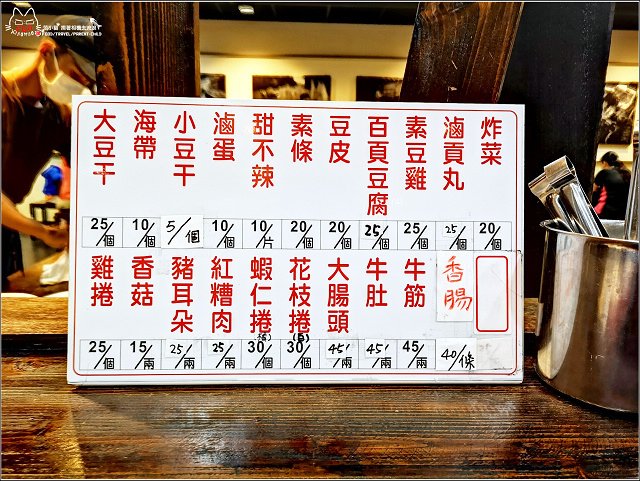 炸菜
滷貢丸
素豆雞
百頁豆腐
豆皮
素條
甜不辣
滷蛋
小豆干
海帶
大豆干
20/個
25/個
25/個
25/個
20/個
20/個
10/片
10/個
5/個
10/個
25/個
香腸
牛筋
牛肚
大腸頭
花枝捲(白)
蝦仁捲
紅糟肉
豬耳朵
香菇
雞捲
40/條
45/兩
45/兩
45/兩
30/個
30/個
25/兩
25/兩
15/兩
25/個
FOOD/TRAVEL/PARENT-CHILD